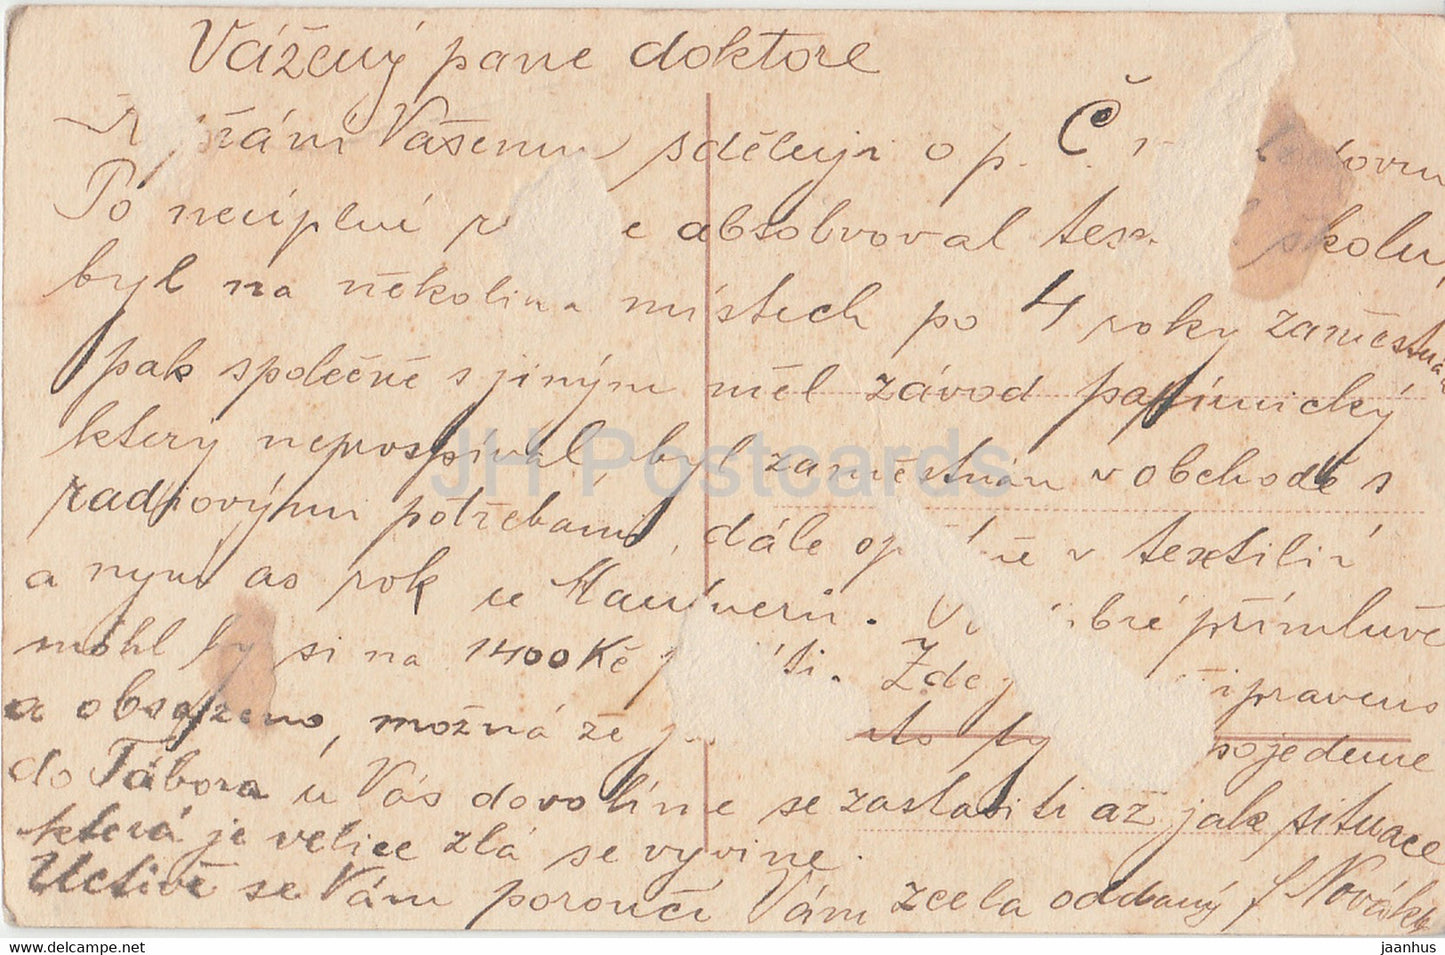 Vážený pane doktore
přání Vašemu sděluji o p. Č.
Po neúplné absolvoval školu,
byl na několika místech po 4 roky zaměstnán
pak společně s jiným měl závod papírnický
který neprospíval, byl zaměstnán v obchodě s
radiovými potřebami, dále v textilii
a nyní as rok u . V příměluvě
mohl by si na 1400 Kč . Zde připraveno
a obsazeno, možná že pojedeme
do Tábora u Vás dovolíme se zastaviti až jak situace
která je velice zlá se vyvine.
Uctivě se Vám poroučí Vám zcela oddaný f Novák
JH Postcards
www.delcampe.net
jaanhus